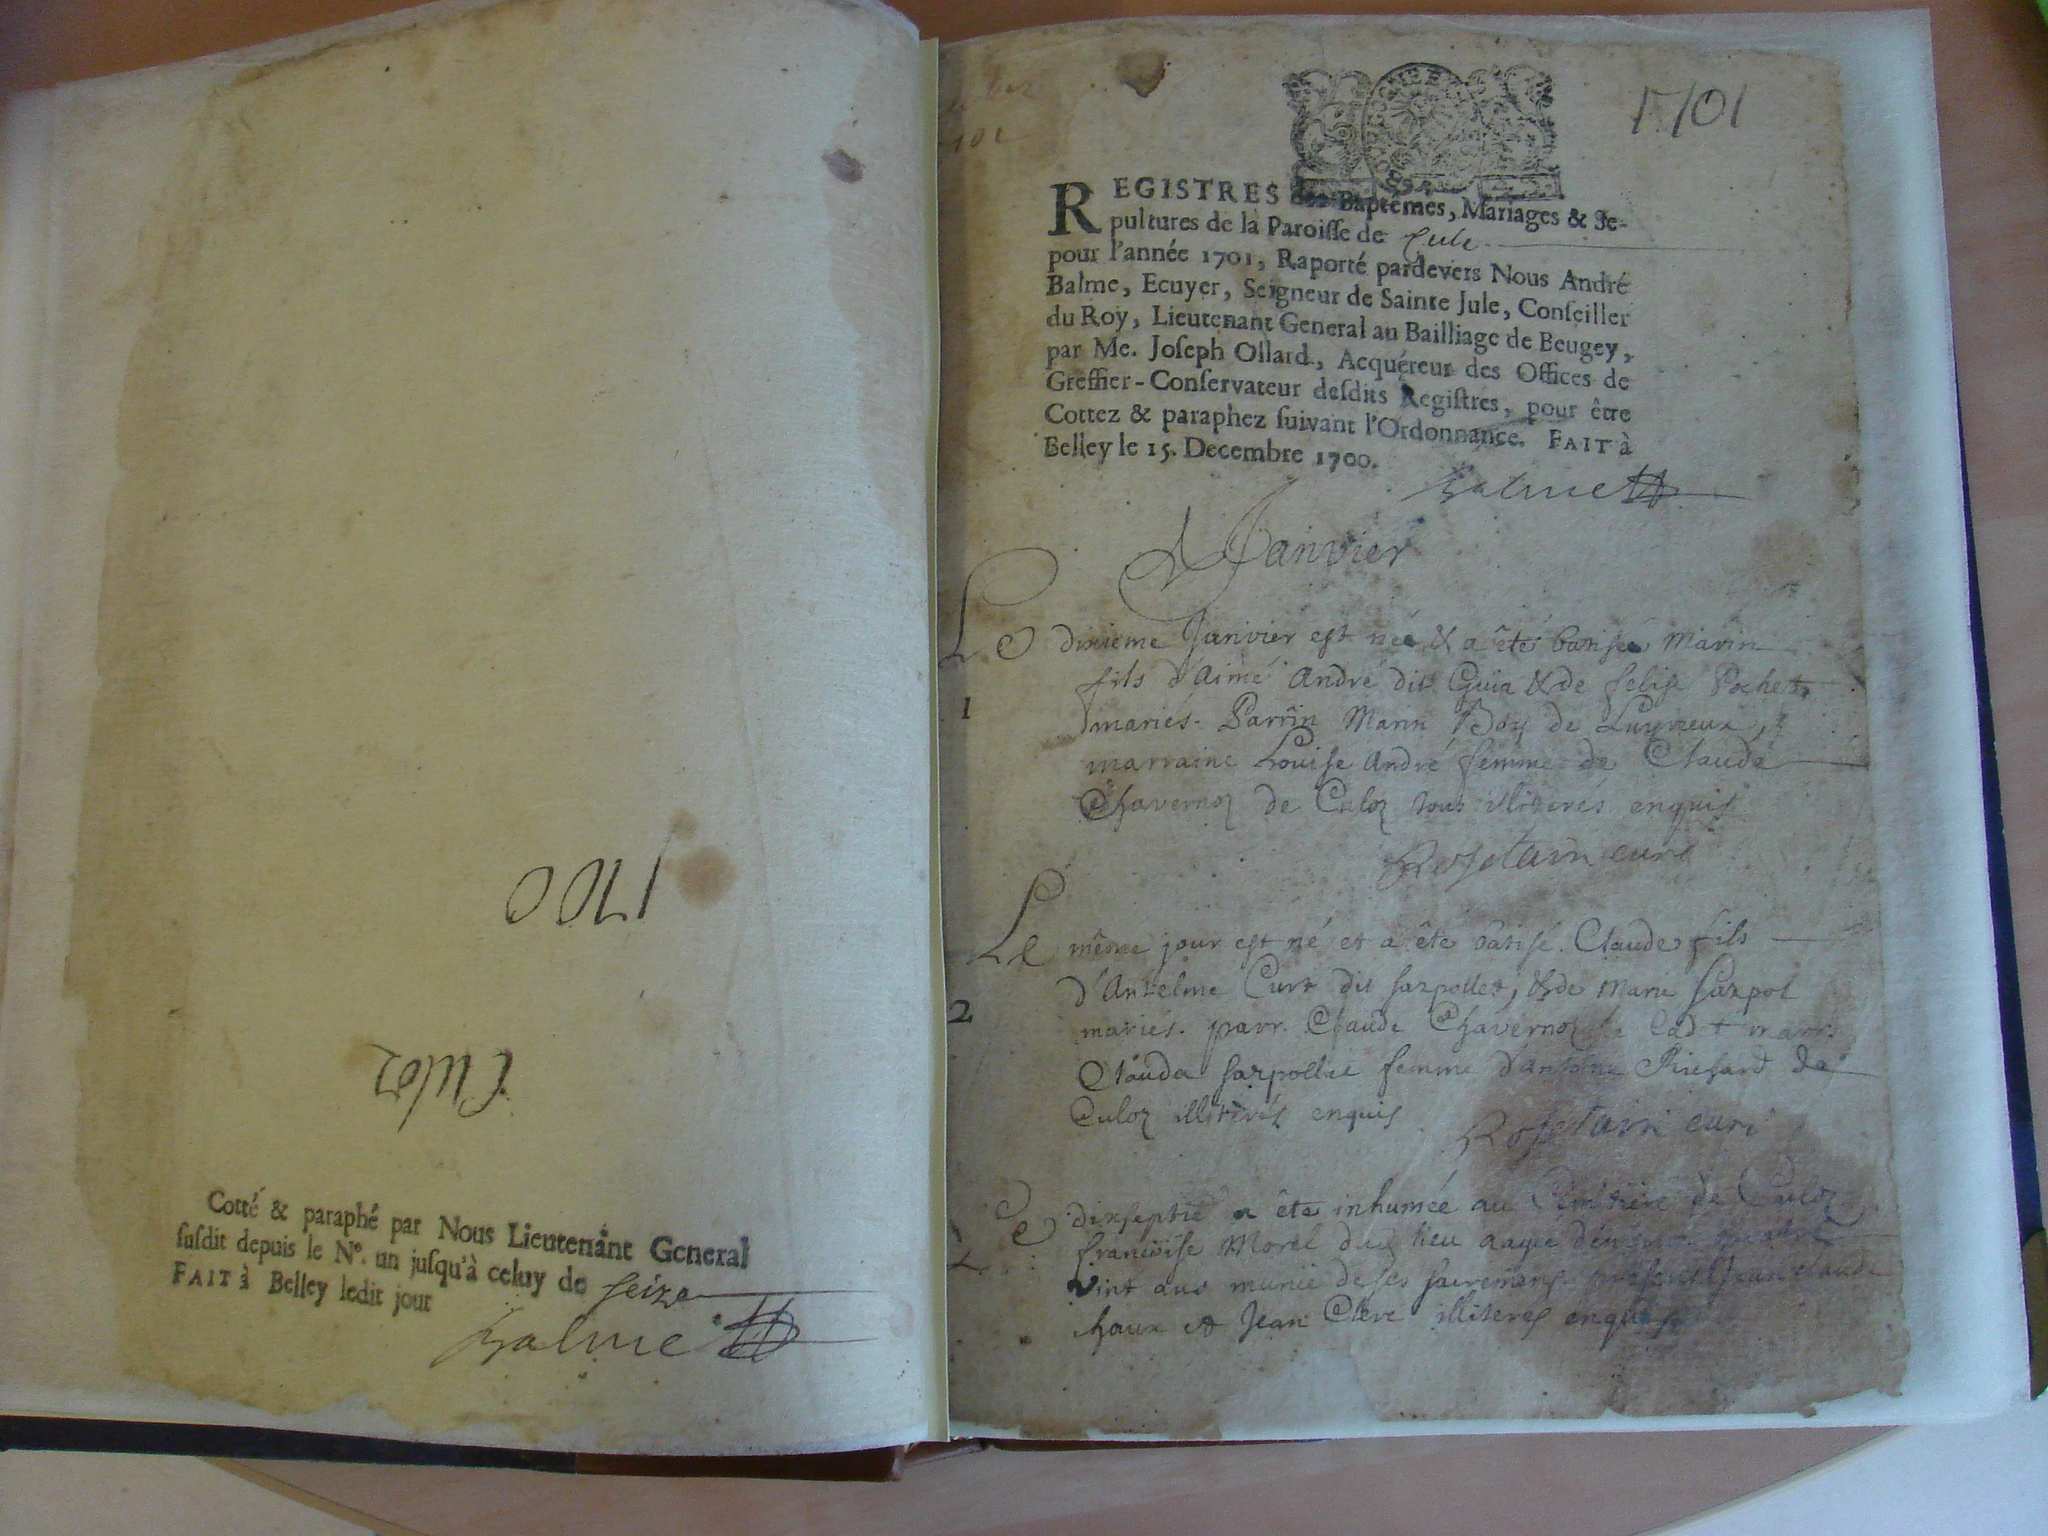 1700
Culoz
Cotté & paraphé par Nous Lieutenant General
ſuſdit depuis le Nº. un juſqu'à celuy de seize
FAIT à Belley ledit jour
Balme
1701
REGISTRES des Baptêmes, Mariages & Se-
pultures de la Paroiſſe de
pour l'année 1701, Raporté pardevers Nous André
Balme, Ecuyer, Seigneur de Sainte Jule, Conſeiller
du Roy, Lieutenant General au Bailliage de Beugey,
par Me. Joſeph Ollard, Acquéreur des Offices de
Greffier-Conſervateur deſdits Regiſtres, pour être
Cottez & paraphez ſuivant l'Ordonnance. FAIT à
Belley le 15. Decembre 1700.
Balme
Janvier
Le dixieme Janvier est née & a êté batisée Marin
fils d'Aimé André dit Guia & de felise Pochet
1
mariés. Parrin Marin Boy de
marraine Louise André femme de Claude
Chavernoz de Culoz tous illiterés enquis
Rosetain curé
Le même jour est né et a êté batisé Claude fils
d'Antelme Curt dit sarpollet, & de Marie sarpol
2
mariés. parr. Claude Chavernoz le Cadet marr.
Clauda sarpollie femme d'Antoine Richard de
Culoz illiterés enquis
Rosetain curé
Le dixseptie a êté inhumée au Cimetiere de Culoz
francoise Morel dud lieu aagée
vint ans munie de ses sacremens presens Jean claude
chaux et Jean Clerc illiteres enquis